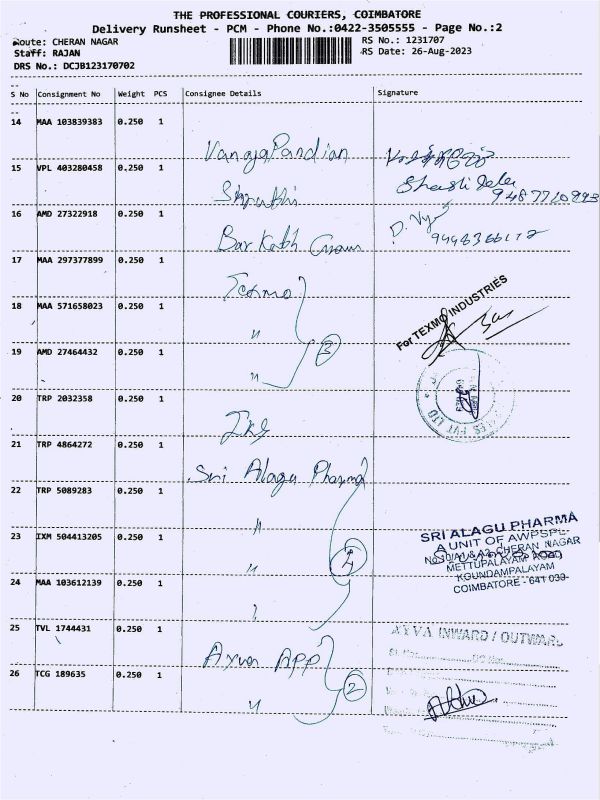 THE PROFESSIONAL COURIERS, COIMBATORE
Delivery Runsheet - PCM - Phone No.:0422-3505555 - Page No.:2
Route: CHERAN NAGAR
RS No.: 1231707
Staff: RAJAN
RS Date: 26-Aug-2023
DRS No.: DCJB123170702
S No Consignment No Weight PCS Consignee Details Signature
14 MAA 103839383 0.250 1 Vanaja Pandian
15 VPL 403280458 0.250 1 Shruthi
9487710893
16 AMD 27322918 0.250 1
17 MAA 297377899 0.250 1 Texmo
18 MAA 571658023 0.250 1 "
For TEXMO INDUSTRIES
19 AMD 27464432 0.250 1 " 3
20 TRP 2032358 0.250 1
PVT LTD
21 TRP 4864272 0.250 1 Sri Alagu Pharma
22 TRP 5089283 0.250 1 "
SRI ALAGU PHARMA
A UNIT OF AWPSPL
23 IXM 504413205 0.250 1 " 4
CHERAN NAGAR
METTUPALAYAM ROAD
KOUNDAMPALAYAM
COIMBATORE - 641 030
24 MAA 103612139 0.250 1 "
25 TVL 1744431 0.250 1 Ayva APP
AYVA INWARD / OUTWARD
26 TCG 189635 0.250 1 " 2